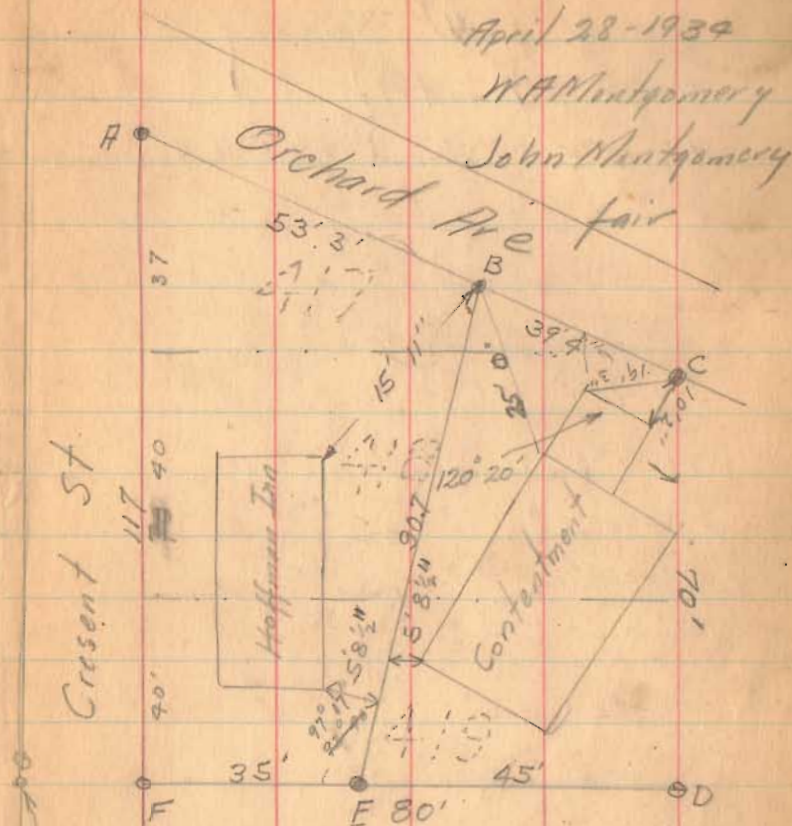 April 28-1934
W A Montgomery
John Montgomery
fair
A
Orchard Ave
53'.3'
37
B
39'4"
C
19'.3"
10'2"
15' 11"
25' 0"
Cresent St
117
40
120° 20'
90.7
Hoffman Inn
Contentment
70'
5' 8½"
5' 8½"
40'
97°
35'
45'
F
E
80'
D